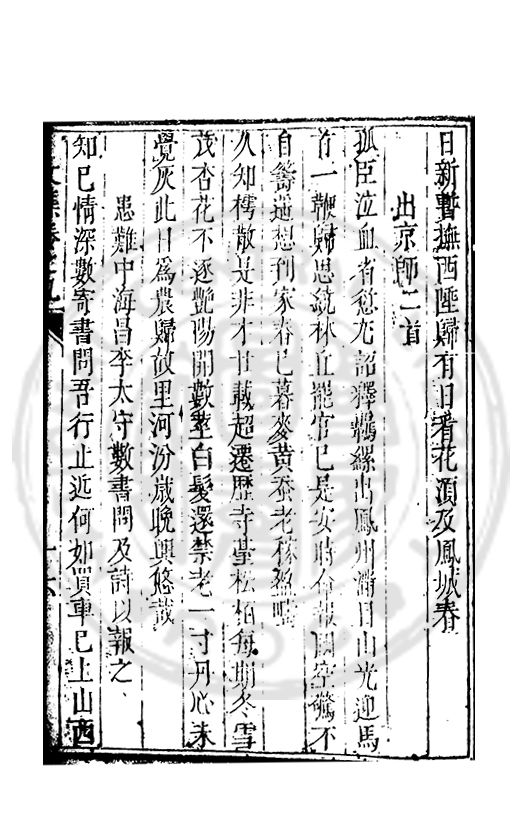 日新暫撫西陲歸有日看花須及鳳城春
出京師二首
孤臣泣血省愆尤詔釋羈縲出鳳州滿目山光迎馬
首一鞭歸思繞林丘罷官已是安時命報國空驚不
自籌遥想到家春已暮麥黃蚕老稼盈疇
久知樗散是非才廿載超遷歷寺臺松柏每期冬雪
茂杏花不逐艷陽開數莖白髮還禁老一寸丹心未
覺灰此日爲農歸故里河汾歲晚興悠哉
患難中海昌李太守數書問及詩以報之
知已情深數寄書問吾行止近何如買車已上山西
文集卷之九
十六